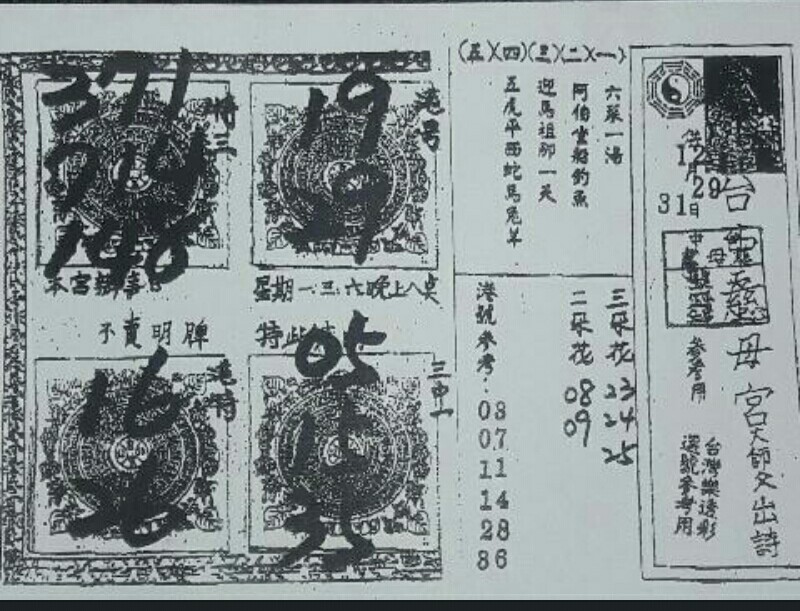 台靈慈母宮天師文出詩
12月
29
31日
參考用
台灣樂透彩
選號參考用
(五)(四)(三)(二)(一)
六菜一湯
阿伯坐船釣魚
迎馬祖那一天
五虎平西蛇馬兔羊
三朵花 23 24 25
二朵花 08 09
港號參考: 03 07 11 14 28 36
19
特三
371
714
148
本宮辦事
星期一.三.六晚上八點
不賣明牌 特此
三中一
05
15
35
16
36